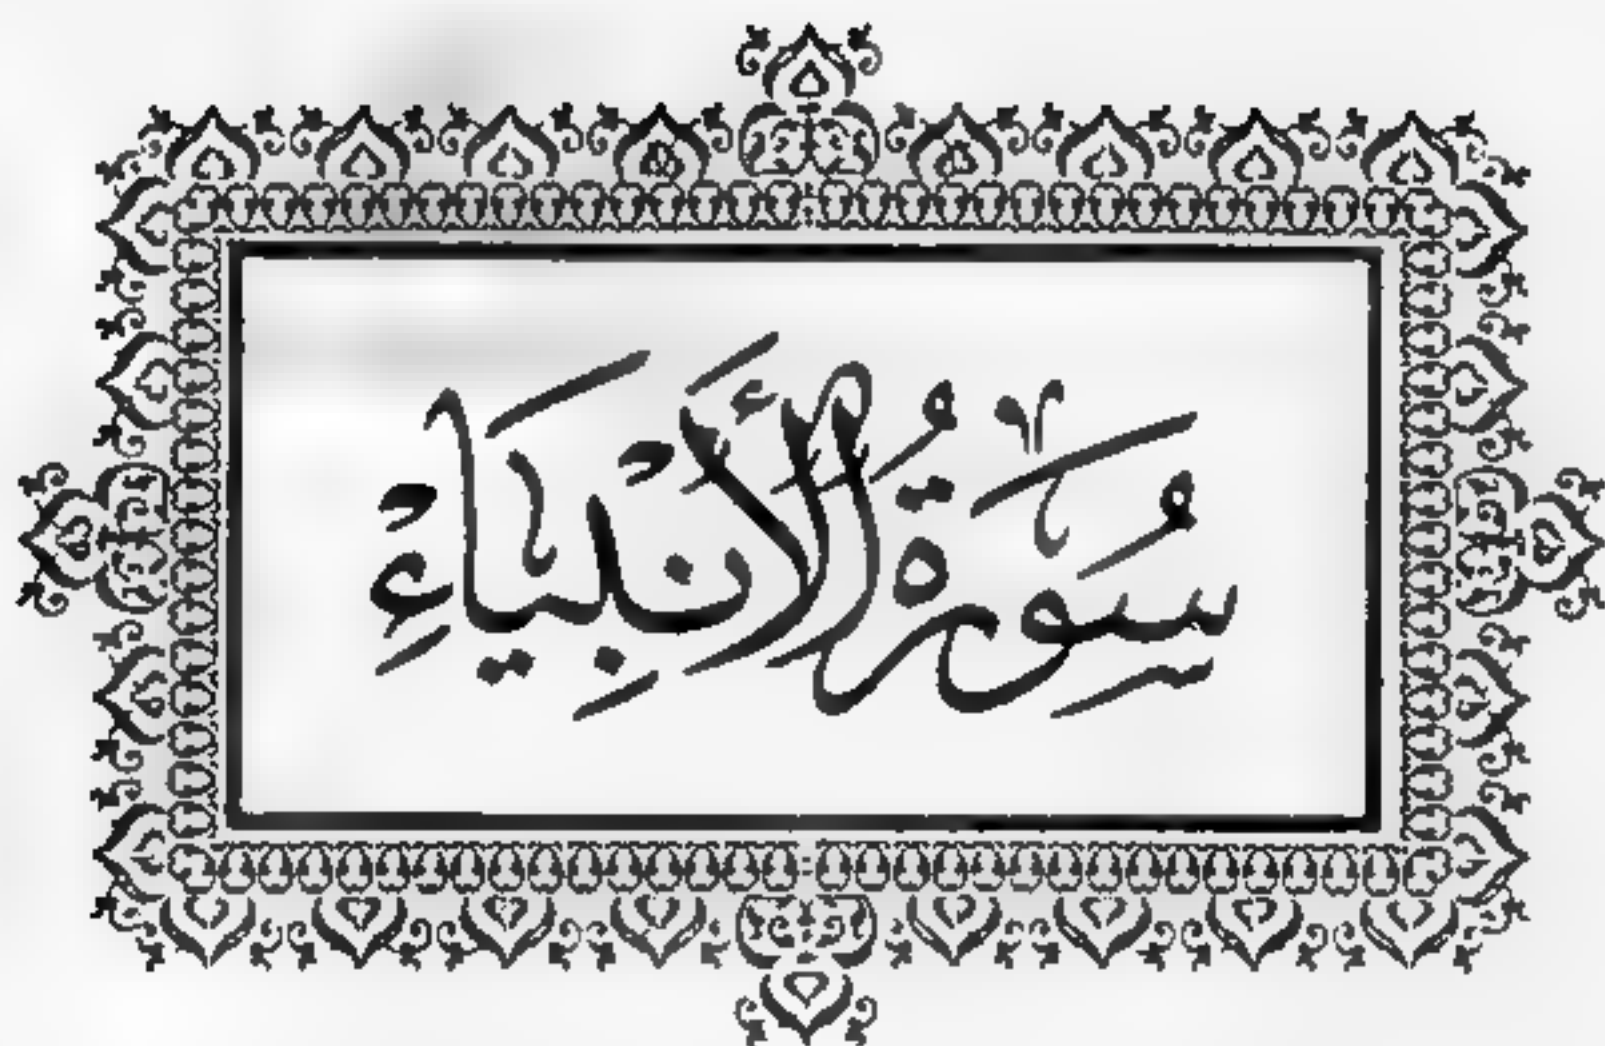 سُورَةُ الأَنْبِيَاءِ